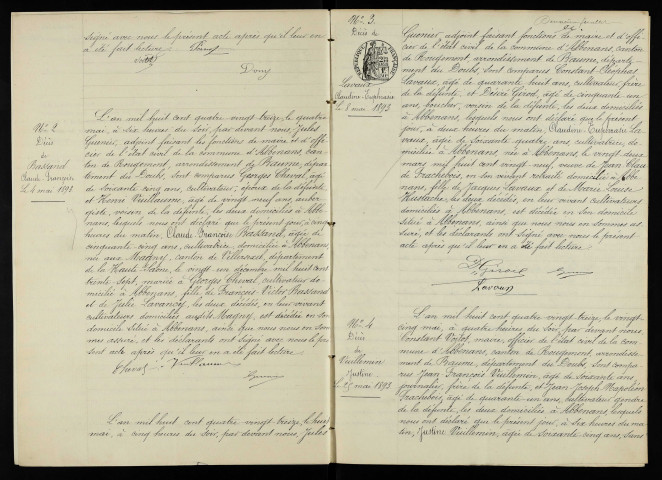 signé avec nous le présent acte après qu'il leur en
a été fait lecture.
Dony
N° 2
Décès
de
Bassand
Claude Françoise
Le 4 mai 1893
L'an mil huit cent quatre vingt treize, le quatre
mai, à six heures du soir, par devant nous, Jules
Guenier, adjoint faisant les fonctions de maire et d'offi-
cier de l'état civil de la commune d'Abbenans, can-
ton de Rougemont, arrondissement de Baume, dépar-
tement du Doubs, sont comparus Georges Cheval, âgé
de soixante cinq ans, cultivateur, époux de la défunte,
et Henri Vuillaume, âgé de vingt neuf ans, auber-
giste, voisin de la défunte, les deux domiciliés à Abbe-
nans, lesquels nous ont déclaré que le présent jour, à cinq
heures du matin, Claude Françoise Bassand, âgée de
cinquante cinq ans, cultivatrice, domiciliée à Abbenans,
née aux Magny, canton de Villersexel, département
de la Haute Saône, le vingt un décembre mil huit cent
trente sept, mariée à Georges Cheval, cultivateur do-
micilié à Abbenans, fille de François Victor Bassand
et de Julie Lavancey, les deux décédés, en leur vivant
cultivateurs domiciliés audit Magny, est décédée en son
domicile situé à Abbenans, ainsi que nous nous en som-
mes assuré, et les déclarants ont signé avec nous le pré-
sent acte après qu'il leur en a été fait lecture.
Cheval Vuillaume
L'an mil huit cent quatre vingt treize, le huit
mai, à cinq heures du soir, par devant nous, Jules
N° 3.
Décès
de
Lavaux
Claudine Euphrasie
Le 8 mai 1893
Guenier, adjoint faisant fonctions de maire et d'offi-
cier de l'état civil de la commune d'Abbenans, canton
de Rougemont, arrondissement de Baume, départe-
ment du Doubs, sont comparus Constant
Lavaux, âgé de quarante huit ans, cultivateur, frère
de la défunte, et Désiré Girod, âgé de cinquante un
ans, boucher, voisin de la défunte, les deux domiciliés
à Abbenans, lesquels nous ont déclaré que le présent
jour, à deux heures du matin, Claudine Euphrasie La-
vaux, âgée de soixante quatre ans, cultivatrice, do-
miciliée à Abbenans, née à Abbenans, le vingt deux
mars mil huit cent vingt neuf, veuve de Jean Claude
Frachebois, en son vivant domicilié à Abbe-
nans, fille de Jacques Lavaux et de Marie Louise
les deux décédés, en leur vivant cultivateurs
domiciliés à Abbenans, est décédée en son domicile
situé à Abbenans, ainsi que nous nous en sommes as-
suré, et les déclarants ont signé avec nous le présent
acte après qu'il leur en a été fait lecture.
D Girod
Lavaux
N° 4
Décès
de
Vuillemin
Justine
Le 25 mai 1893.
L'an mil huit cent quatre vingt treize, le vingt
cinq mai, à quatre heures du soir, par devant nous
Constant maire, officier de l'état civil de la com-
mune d'Abbenans, canton de Rougemont, arrondisse-
ment de Baume, département du Doubs, sont compa-
rus Jean François Vuillemin, âgé de soixante ans,
journalier, frère de la défunte, et Jean Joseph Napoléon
Frachebois, âgé de quarante un ans, cultivateur, gendre
de la défunte, les deux domiciliés à Abbenans, lesquels
nous ont déclaré que le présent jour, à dix heures du ma-
tin, Justine Vuillemin, âgée de soixante cinq ans, sans